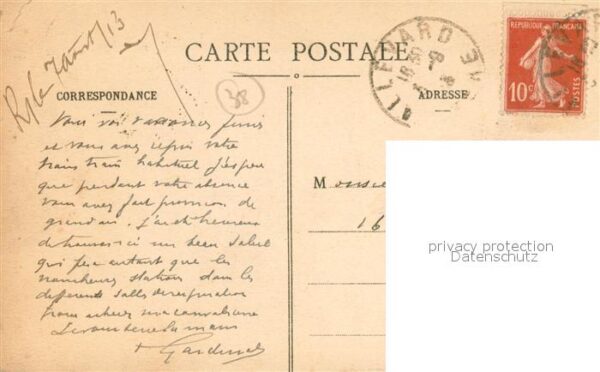 Rép le 7 août /13
CARTE POSTALE
CORRESPONDANCE
38
ADRESSE
ALLEVARD
RÉPUBLIQUE FRANÇAISE
10c
POSTES
Vous voici vacances finies
et vous avez repris votre
train train habituel J'espère
que pendant votre absence
vous avez fait provision de
grand air. J'ai été heureux
de trouver ici un beau soleil
qui fera autant que les
nombreuses stations dans les
différentes salles de respiration
pour achever ma convalescence
la main
Monsie
16
privacy protection
Datenschutz